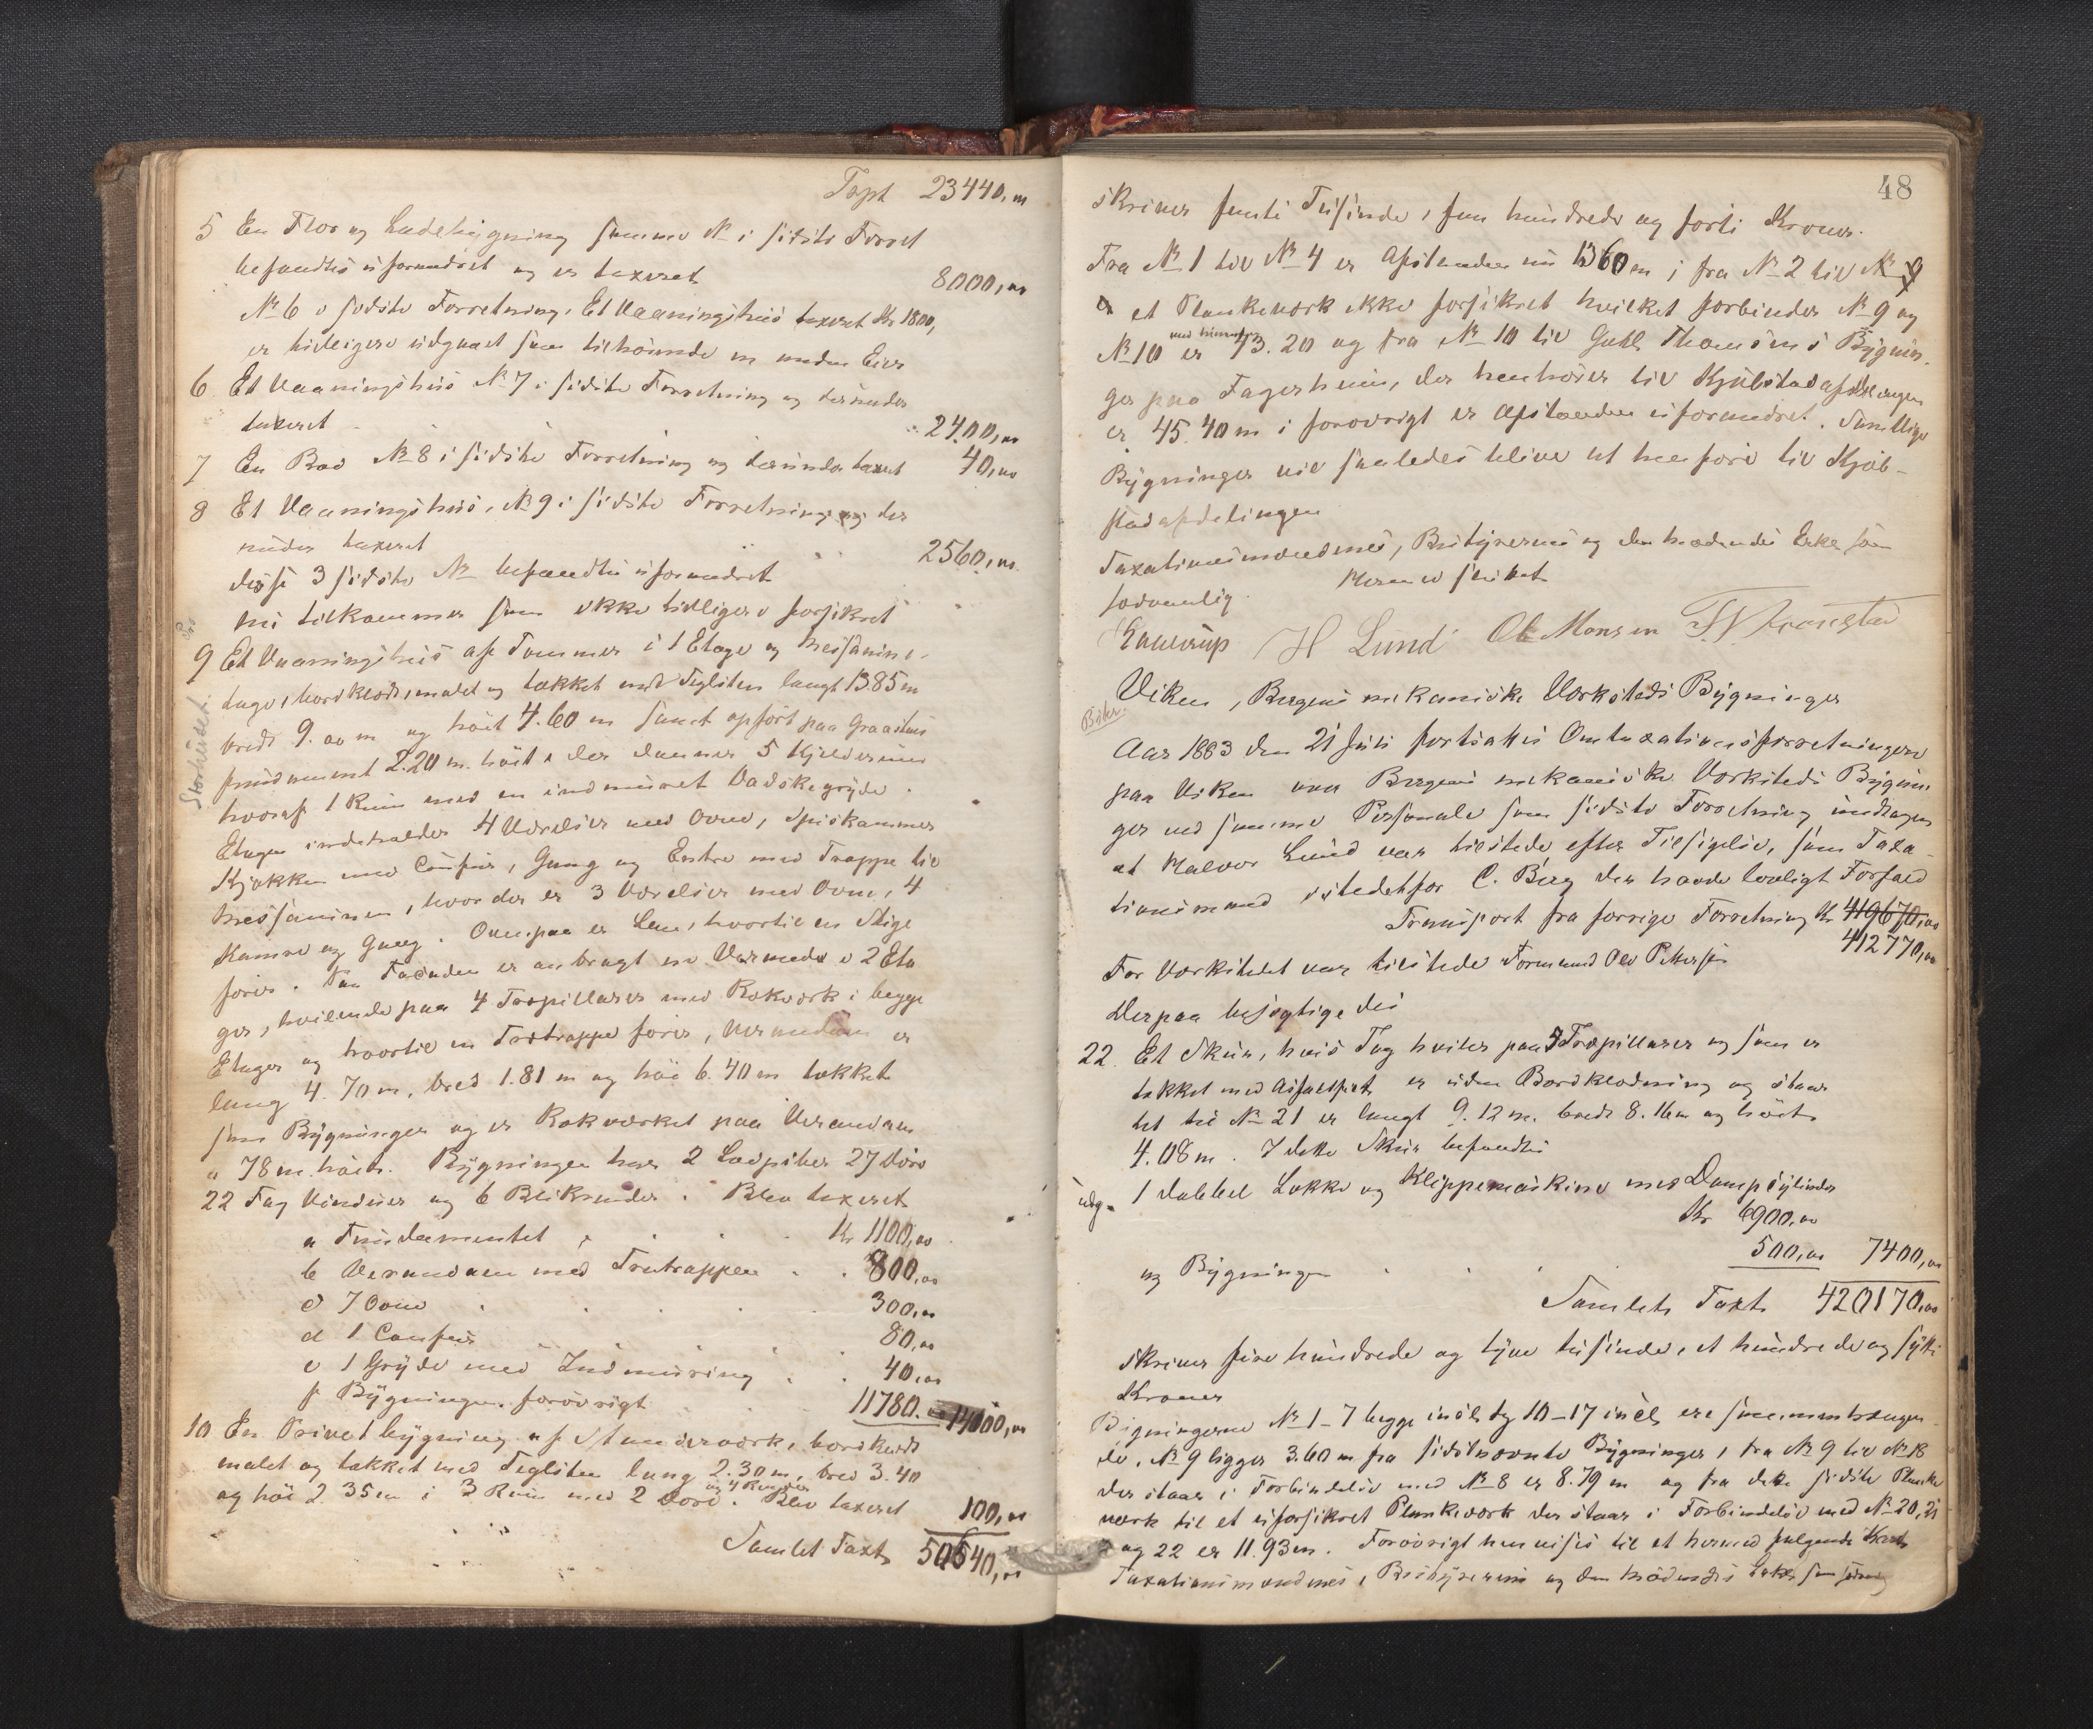 Tapt 23440,00
5 En Flor og Ladebygning samme No i sidste Forret
befandtes uforandret og er taxeret 8000,00
No 6 i sidste Forretning, Et Vaaningshus taxeret Kr 1800,
er tidligere udgaaet som tilhörende en anden Eier
6 Et Vaaningshus No 7 i sidste Forretning og derunder
taxeret 2400,00
7 En Bod No 8 i sidste Forretning og derunder taxeret 40,00
8 Et Vaaningshus, No 9 i sidste Forretning og der
under taxeret 2560,00
disse 3 sidste No befandtes uforandret
nu tilkommer som ikke tidligere forsikret
Storhuset
9 Et Vaaningshus af Tømmer i 1 Etage og Messanine-
tage, bordklædt, malet og tækket med Teglsten langt 13.85 m
bredt 9.00 m og høit 4.60 m samt opført paa Graastens
fundament 2.20 m. høit, der danner 5 Kjælderrum
hvoraf 1 Rum med en indmuret Vadskegryde.
Etagen indeholder 4 Værelser med Ovne, Spiskammer
Kjøkken med Comfur, Gang og Entre med Trappe til
Messaninen, hvor der er 3 Værelser med Ovne, 4
Kamre og Gang. Ovenpaa er Lem, hvortil en Stige
fører. Paa Facaden er anbragt en Veranda i 2 Eta
ger, hvilende paa 4 Træpillarer med Rækværk i begge
Etager og hvortil en Trætrappe fører, Verandaen er
lang 4.70 m, bred 1.81 m og höi 6.40 m tækket
som Bygningen og er Rækværket paa Verandaen
a 78 m. høit. Bygningen har 2 Ladpiber 27 Döre
22 Fag Vinduer og 6 Blikrender. Blev taxeret
a Fundamentet Kr 1100,00
b Verandaen med Trætrappen 800,00
c 7 Ovne 300,00
d 1 Comfur 80,00
e 1 Gryde med Indmuring 40,00
f Bygningen forøvrigt 11780.00 14000,00
10 En Privetbygning af Stenderværk, bordklædt
malet og tækket med Teglsten lang 2.30 m, bred 3.40
og höi 2.35 m i 3 Rum med 2 Döre. Blev taxeret 100,00
Samlet Taxt 50540,00
48
skriver femti Tusinde, fem hundrede og forti Kroner.
Fra No 1 til No 4 er Afstanden nu 1360 m i fra No 2 til No 9
et Plankeværk ikke forsikret hvilket forbinder No 9 og
No 10 er 43.20 og fra No 10 til Thomsens Bygnin-
ger paa Fagerheim, der henhører til Kjøbstadafdelingen
er 45.40 m i forøvrigt er Afstanden uforandret. Samtlige
Bygninger vil saaledes blive at henføre til Kjøb-
stadafdelingen
Taxationsmændenes, Bestyrerens og den mødendes Erkl. som
sædvanlig. Herned sluttet
H Lund Ole Monsen
Viken, Bergens mekaniske Værksteds Bygninger
Aar 1883 den 21 Juli fortsattes Omtaxationsforretningen
paa Viken over Bergens mekaniske Værksteds Bygnin-
ger ved samme Personale som sidste Forretning undtagen
at Halvor Lund var tilstede efter Tilsigelse, som Taxa-
tionsmand istedetfor C. Berg der havde lovligt Forfald
Transport fra forrige Forretning Kr 419670,00
412770,00
For Værkstedet var tilstede Formand Ole Pettersen
Derpaa besigtigedes
22. Et Skur, hvis Tag hviler paa 7 Træpillarer og som er
tækket med Asfaltfilt er uden Bordklædning og staar
tæt til No 21 er langt 9.12 m. bredt 8.16 m og høit
4.08 m. I dette Skur befandtes
udg. 1 dobbel Lokke og Klippemaskine med Dampcylinder
Kr 6900,00
og Bygningen 500,00 7400,00
Samlet Taxt 420170,00
skriver fire hundrede og tyve tusinde, et hundrede og sytti
Kroner
Bygningerne No 1-7 begge incl. og 10-17 incl. ere sammenhængen
de, No 9 ligger 3.60 m fra sidstnævnte Bygninger, fra No 9 til No 18
der staar i Forbindelse med No 8 er 8.79 m og fra dette sidste Planke
værk til et uforsikret Plankeværk der staar i Forbindelse med No 20, 21
og 22 er 11.93 m. Forøvrigt henvises til et hermed følgende Kart
Taxationsmændenes, Bestyrerens og den mødendes Erkl. som sædvanlig